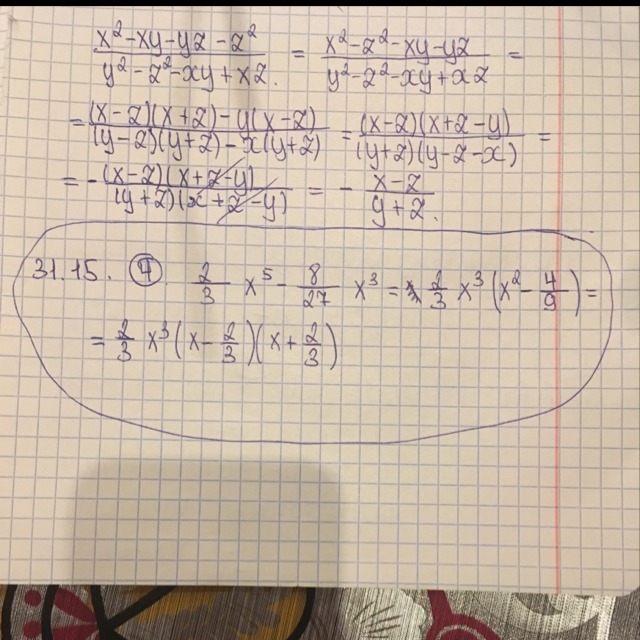 x²-xy-yz-z² / y²-z²-xy+xz = x²-z²-xy-yz / y²-z²-xy+xz =
= (x-z)(x+z)-y(x-z) / (y-z)(y+z)-x(y+z) = (x-z)(x+z-y) / (y+z)(y-z-x) =
= - (x-z)(x+z-y) / (y+z)(x+z-y) = - x-z / y+z.
31.15. ④ 2/3 x⁵ - 8/27 x³ = 2/3 x³(x² - 4/9) =
= 2/3 x³(x - 2/3)(x + 2/3)